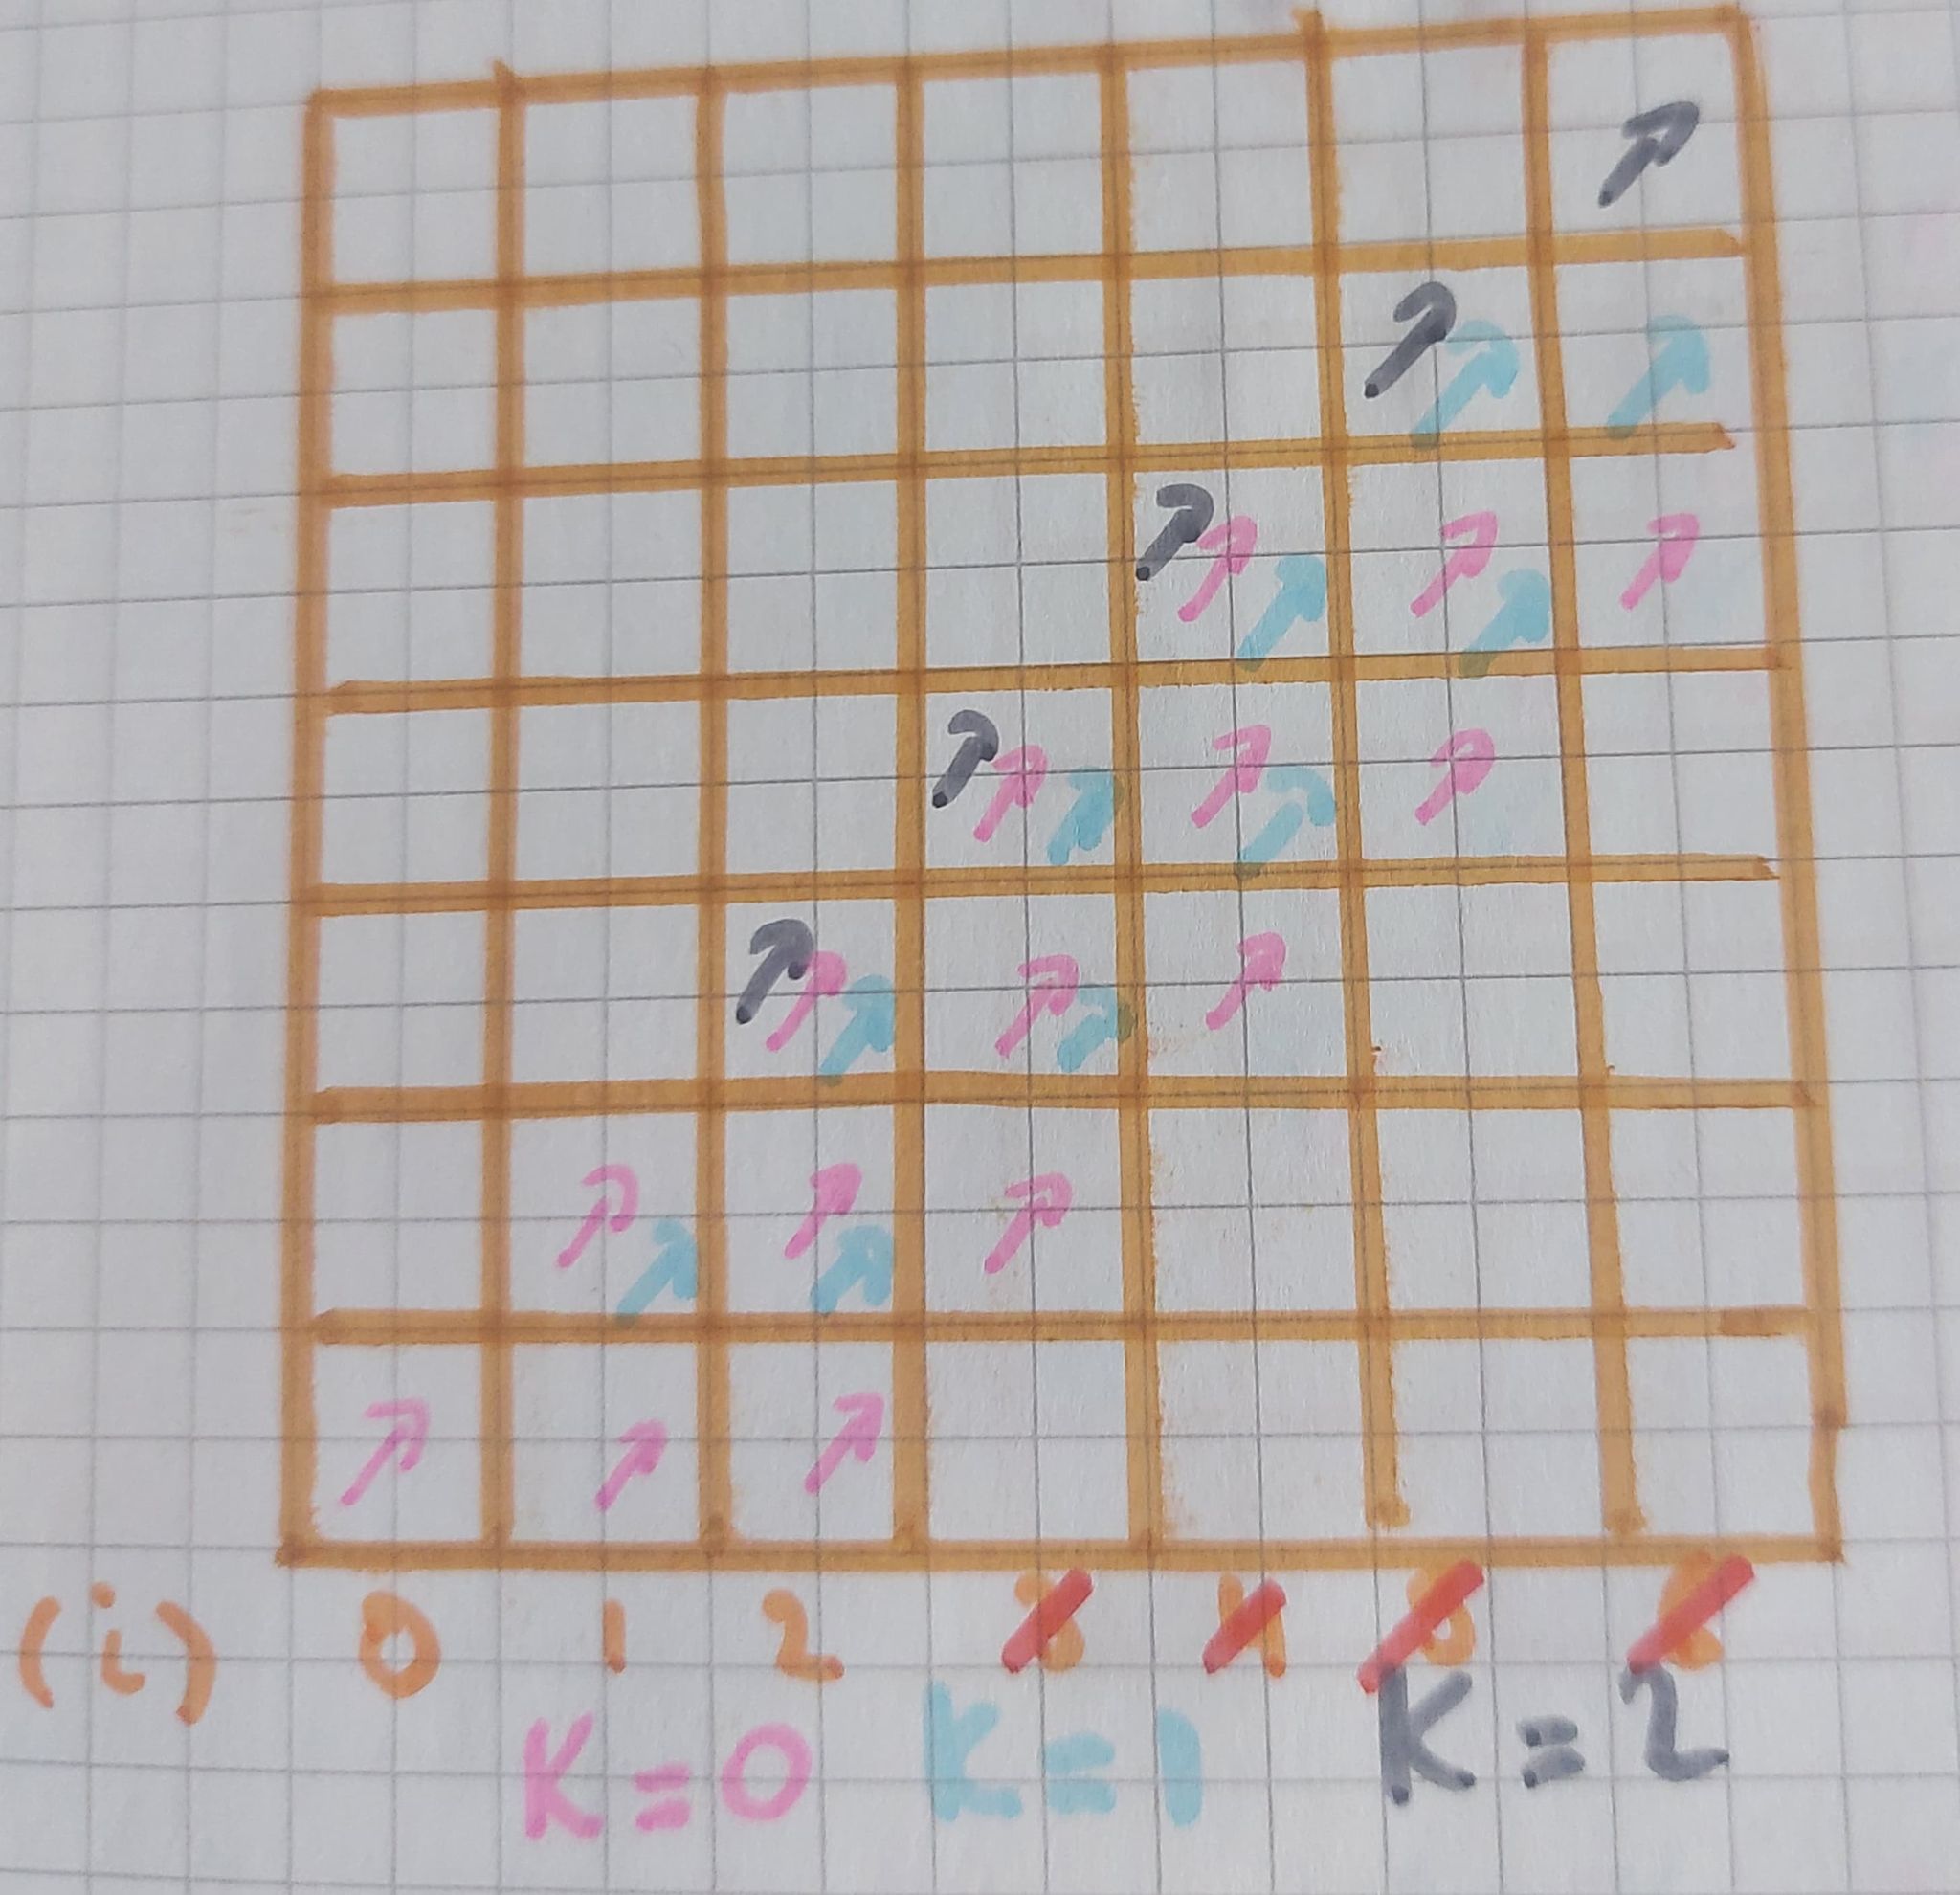 (i) 0 1 2 3 4 5 6
K=0 K=1 K=2